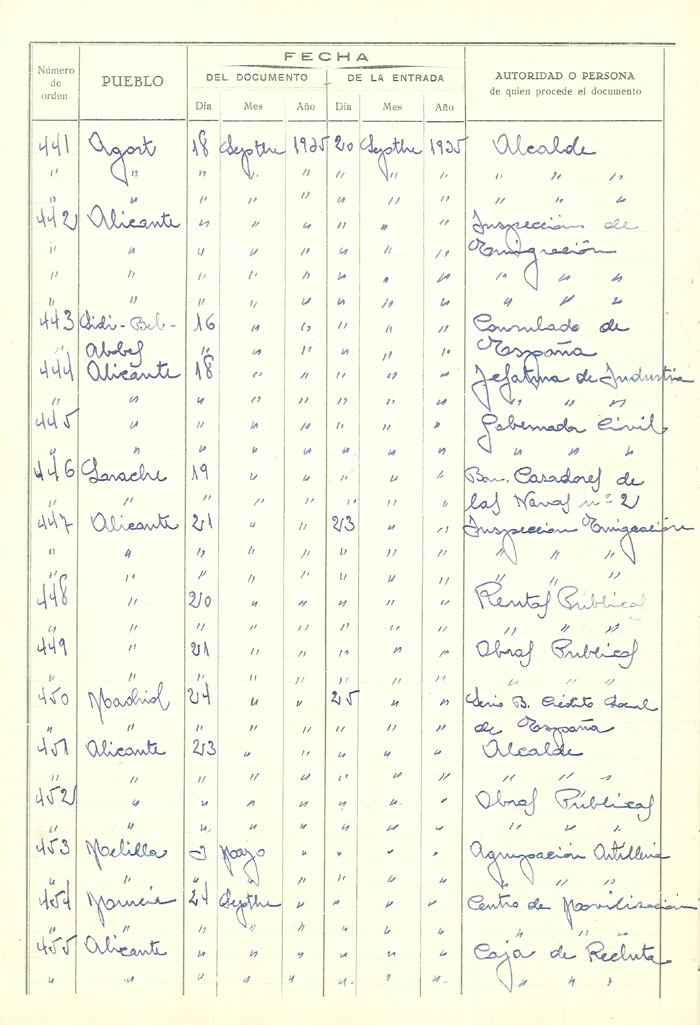 FECHA
Número de orden PUEBLO DEL DOCUMENTO DE LA ENTRADA AUTORIDAD O PERSONA de quien procede el documento
Día Mes Año Día Mes Año
441 Agost 18 Septbre 1935 20 Septbre 1935 Alcalde
" " " " " " " " " " "
" " " " " " " " " "
442 Alicante " " " " " " Inspección de
" " " " " " " " Emigración
" " " " " " " " " " "
" " " " " " " " " "
443 Sidi-Bel- 16 " " " " " Consulado de
" Abbes " " " " " " España
444 Alicante 18 " " " " " Jefatura de Industria
" " " " " " " " " " "
445 " " " " " " " Gobernador Civil
" " " " " " " " "
446 Larache 19 " " " " " Bon. Casadores de
" " " " " " " " las Navas nº 2
447 Alicante 21 " " 23 " " Inspeccion Emigración
" " " " " " " " " " "
" " " " " " " " " " "
448 " 20 " " " " " Rentas Públicas
" " " " " " " " " " "
449 " 21 " " " " " Obras Publicas
" " " " " " " " " "
450 Madrid 24 " " 25 " " B. Crédito Local
" " " " " " " " de España
451 Alicante 23 " " " " " Alcalde
" " " " " " " " " " "
452 " " " " " " " Obras Públicas
" " " " " " " " " " "
453 Melilla 3 Mayo " " " " Agrupación Artilleria
" " " " " " " " " "
454 Murcia 24 Septbre " " " " Centro de Movilización
" " " " " " " "
455 Alicante " " " " " " Caja de Recluta
" " " " " " " " " " "